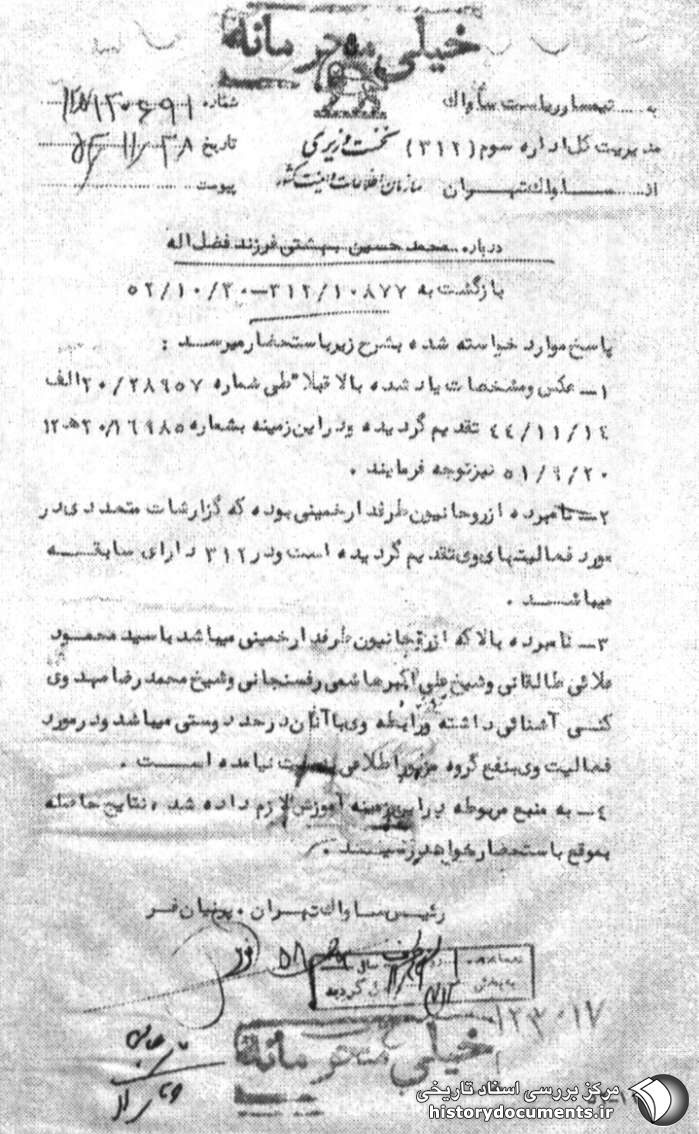 خیلی محرمانه
به تیمسار ریاست ساواک
مدیریت کل اداره سوم (۳۱۲)
از ساواک تهران
نخست وزیری
سازمان اطلاعات و امنیت کشور
شماره
تاریخ
پیوست
درباره محمد حسین بهشتی فرزند فضل اله
بازگشت به ۳۱۲/۱۰۸۷۷ – ۵۲/۱۰/۳۰
پاسخ موارد خواسته شده بشرح زیر باستحضار میرسد :
۱ – عکس و مشخصات یاد شده بالا قبلا" طی شماره ۲۰/۲۸۹۵۷ الف
۴۴/۱۱/۱۴ تقدیم گردیده و در این زمینه بشماره ۲۰/۱۶۹۸۵ ه‍ ۱۲
۵۱/۹/۲۰ نیز توجه فرمایند .
۲ – نامبرده از روحانیون طرفدار خمینی بوده که گزارشات متعددی در
مورد فعالیتهای وی تقدیم گردیده است و در ۳۱۲ دارای سابقه
میباشد .
۳ – نامبرده بالا که از روحانیون طرفدار خمینی میباشد با سید محمود
علائی طالقانی و شیخ علی اکبر هاشمی رفسنجانی و شیخ محمد رضا مهدوی
کنی آشنائی داشته و رابطه وی با آنان در حد دوستی میباشد و در مورد
فعالیت وی بنفع گروه مزبور اطلاعی بدست نیامده است .
۴ – به منبع مربوطه در این زمینه آموزش لازم داده شد ، نتایج حاصله
بموقع باستحضار خواهد رسید .
رئیس ساواک تهران . پرنیان فر
خیلی محرمانه
مرکز بررسی اسناد تاریخی
historydocuments.ir